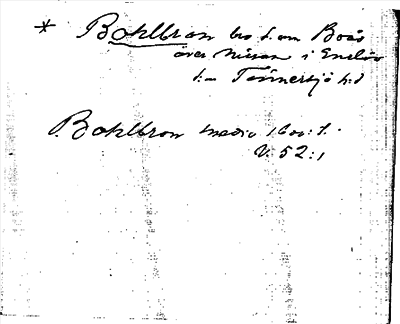 * Bohlbron bro s. om Boås
över Nissan i Enslöv
s:n Tönnersjö h:d
Bohlbron
V. 52:1